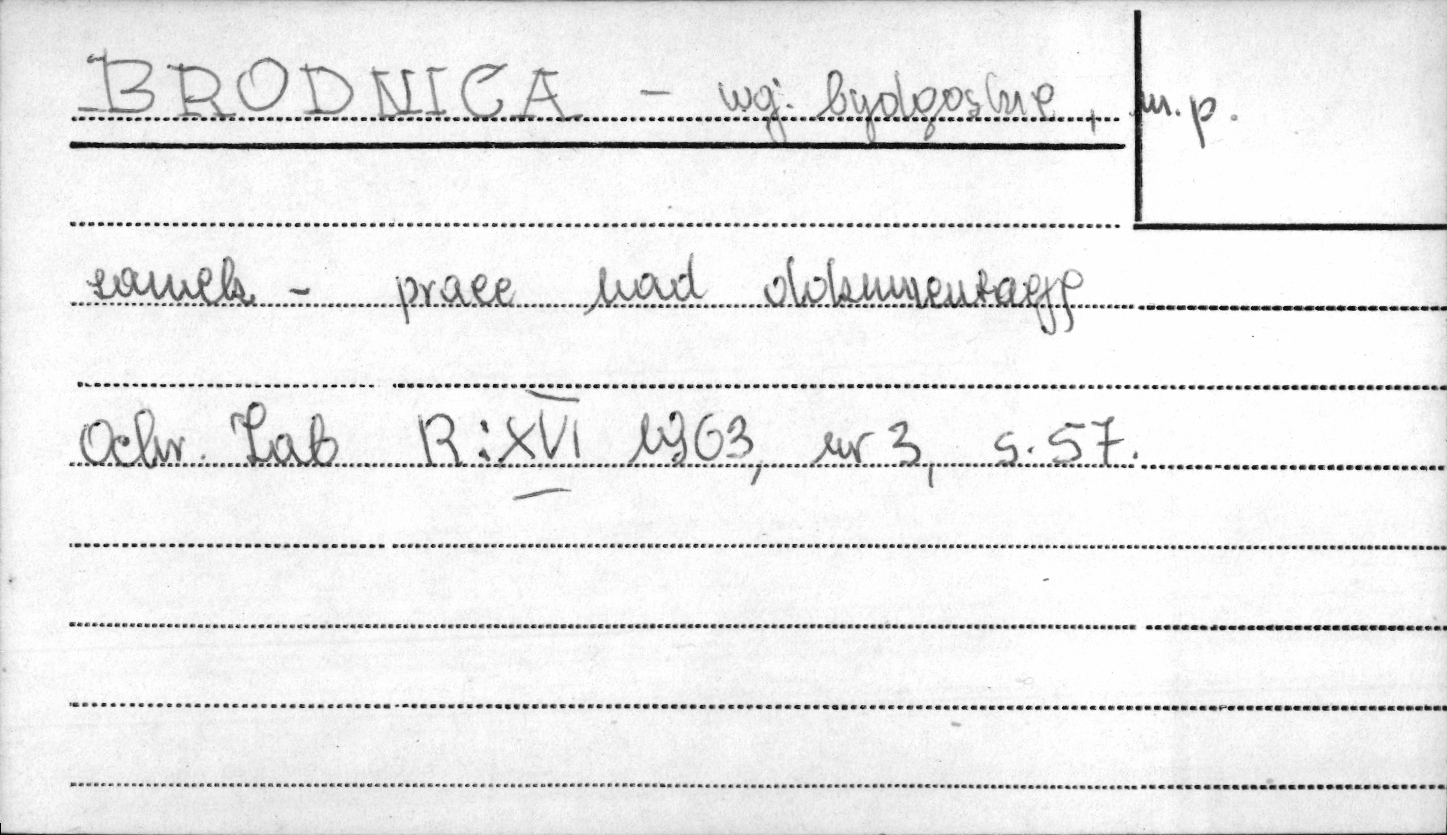 BRODNICA - woj. bydgoskie, m.p.
zamek - prace nad dokumentacją
Ochr. Zab R: XVI 1963, nr 3, s. 57.